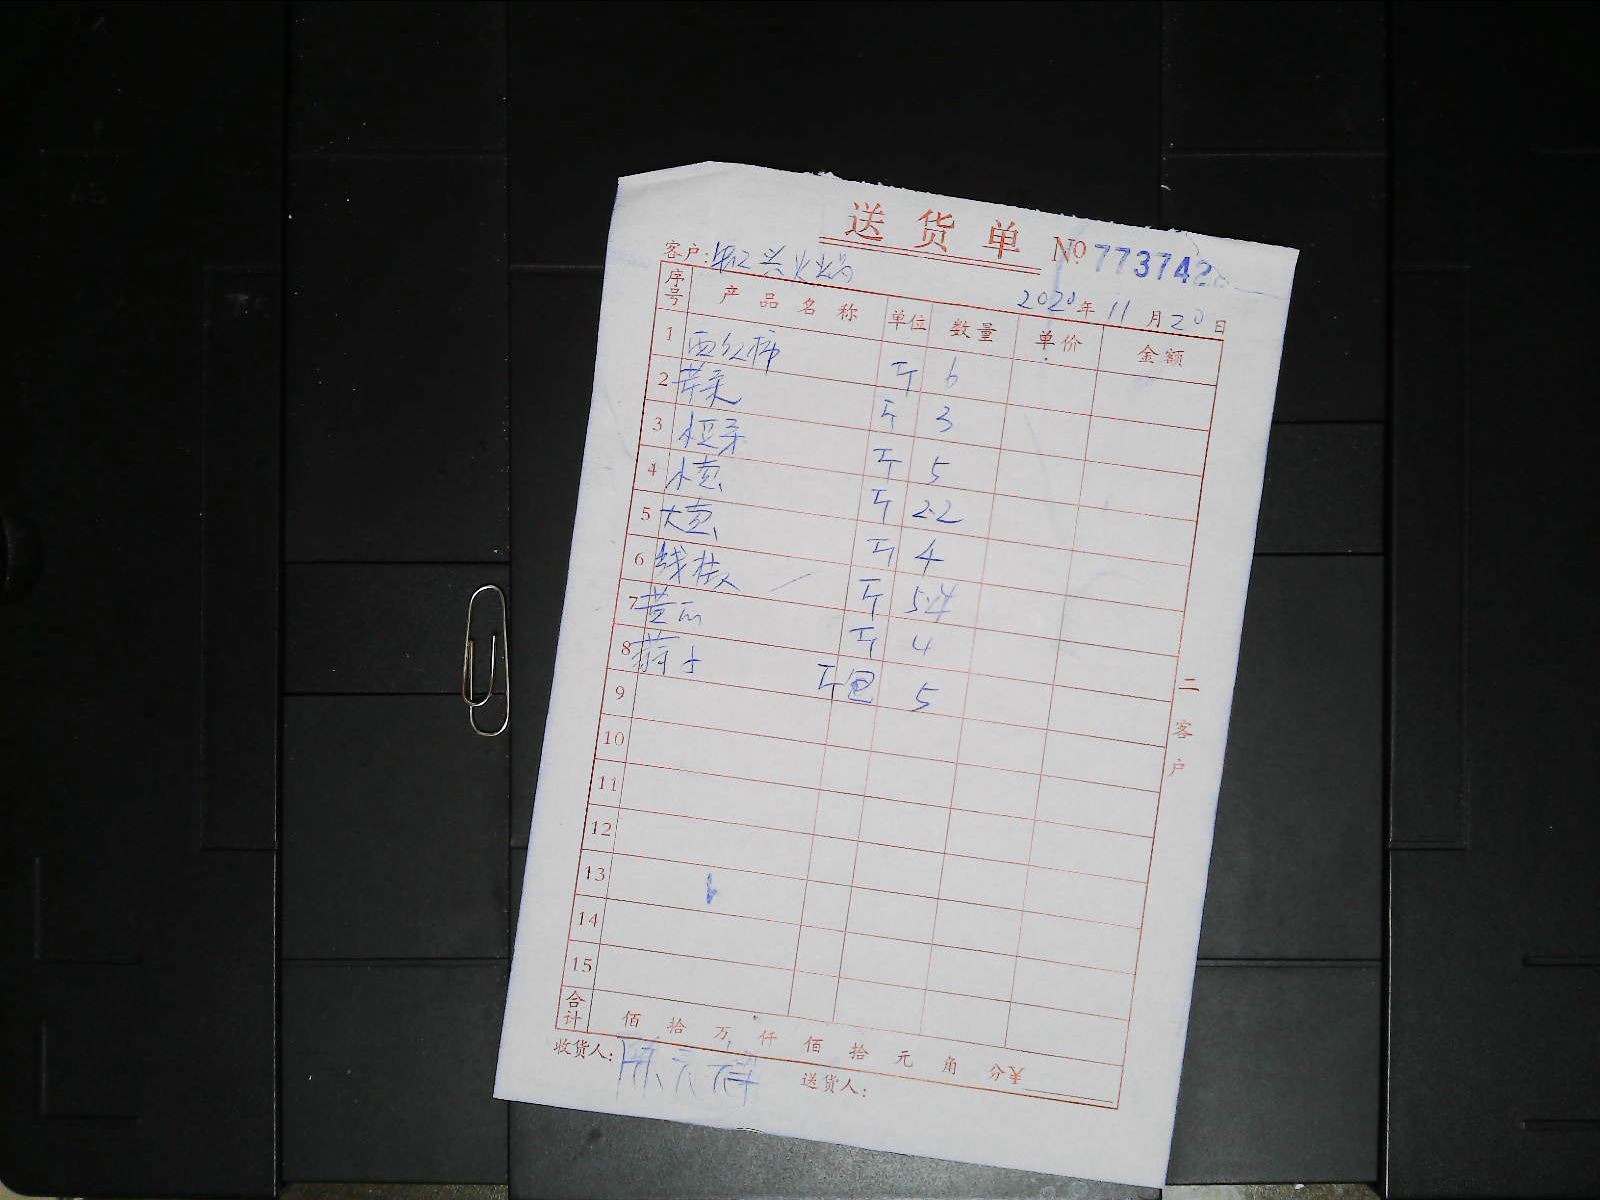 送货单 № 773742
客户: 兴火锅
2020年11月20日
序号 产品名称 单位 数量 单价 金额
1 西红柿 斤 6
2 芹菜 斤 3
3 斤 5
4 小葱 斤 2.2
5 大葱 斤 4
6 线椒 斤 5.4
7 黄瓜 斤 4
8 斤包 5
9
10
11
12
13
14
15
合计 佰 拾 万 仟 佰 拾 元 角 分¥
收货人: 送货人:
二客户